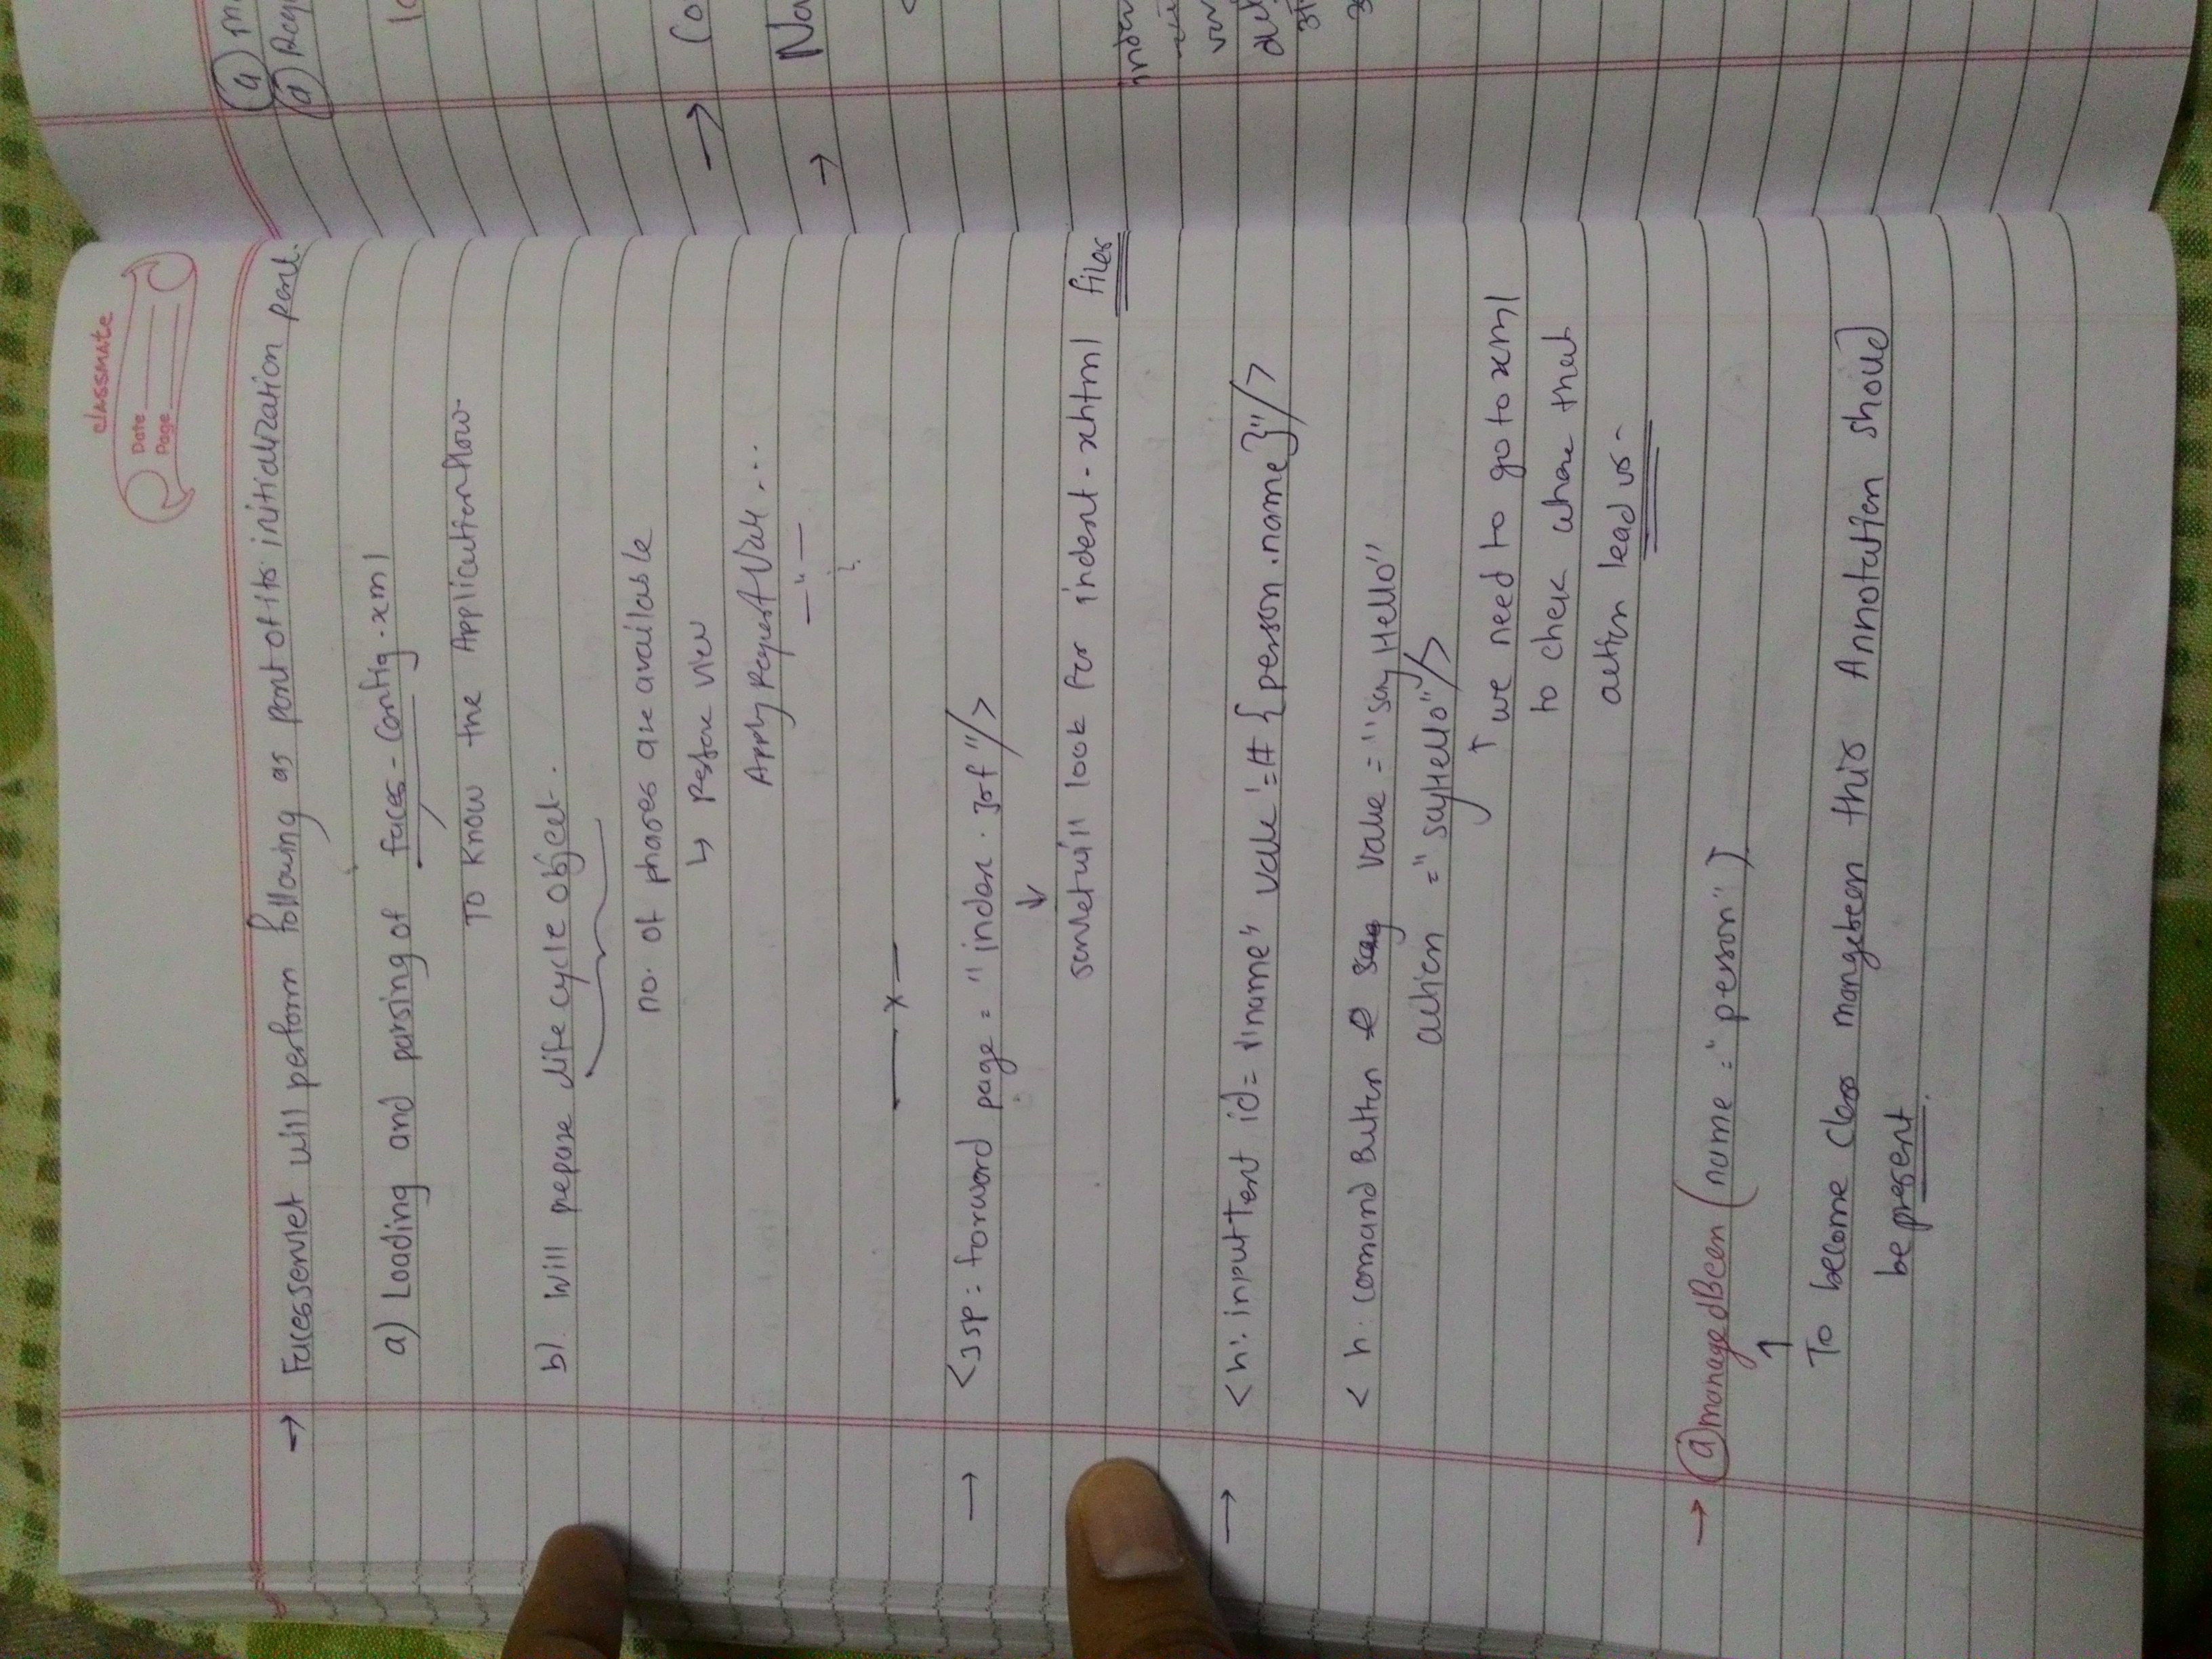 classmate
Date
Page
→ Facesservlet will perform following as part of its initialization part.
a) Loading and parsing of faces-config.xml
To Know the Application flow
b). Will prepare life cycle object.
no. of phases are available
↳ Restore view
Apply Request Value ...
— " —
— x —
→ <jsp: forward page = "index.jsf"/>
↓
servlet will look for indext-xhtml files
→ <h: inputText id= "name" value '=# {person.name}"/>
< h: comand Button say value = "say Hello"
action = "sayHello"/>
↑ we need to go to xml
to chek where that
action lead us-
→ @managedBeen (name = "person")
↑
To become class mangebeen this Annotation shoud
be present.
a
a
→ Co
→ Na
inde